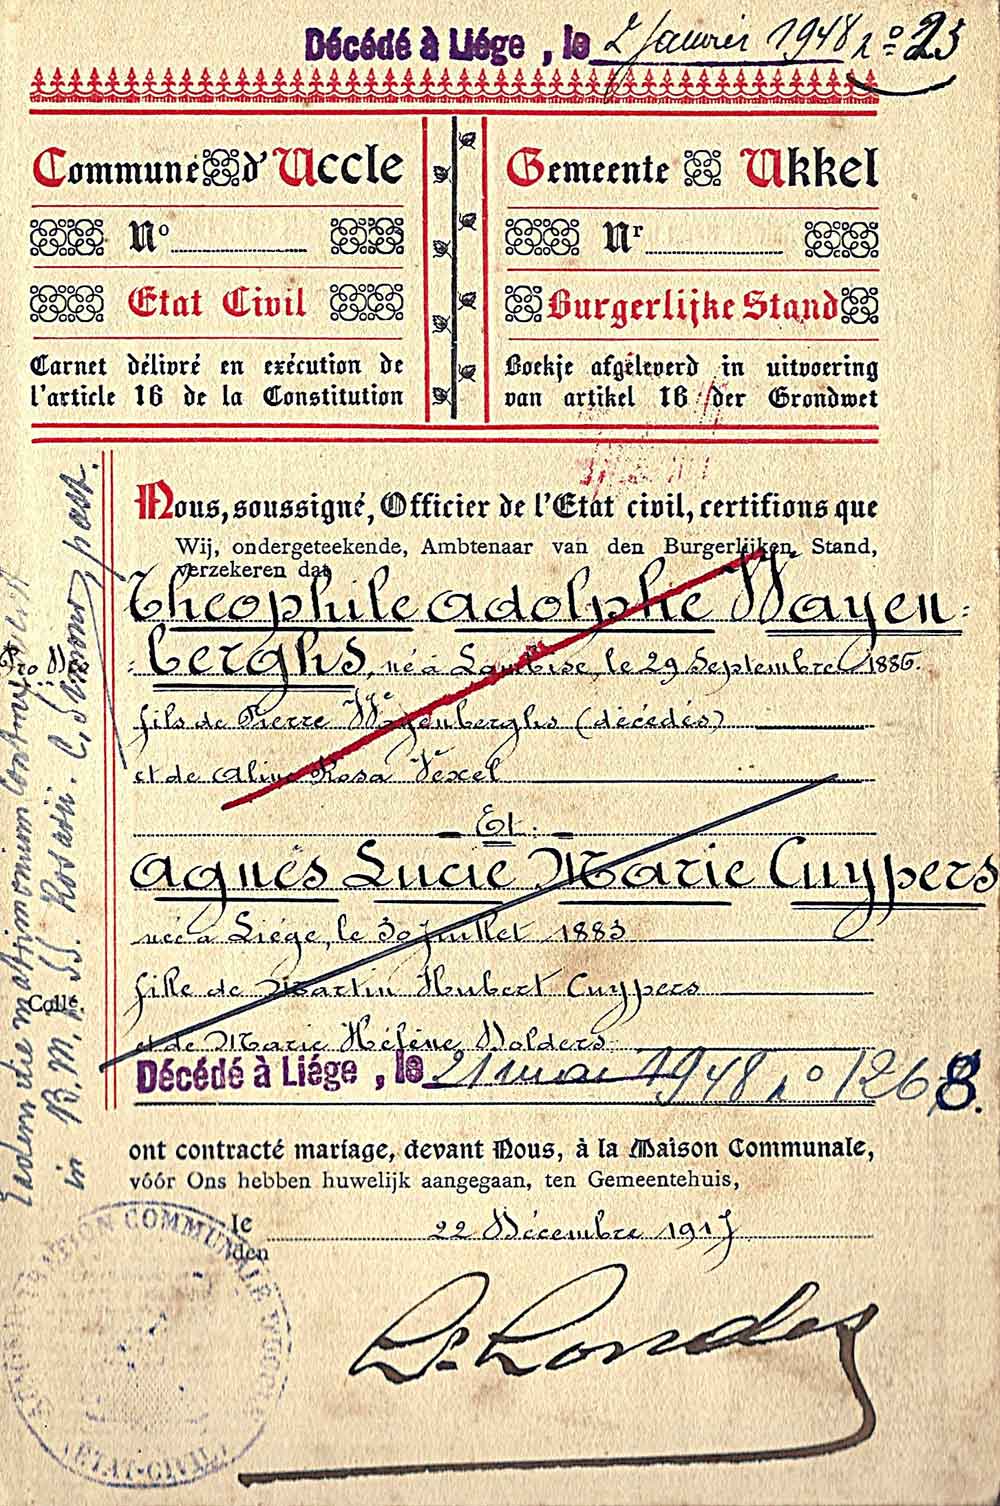 Décédé à Liége, le 2 Janvier 1948 nº 23
Commune d'Uccle
Nº
Etat Civil
Carnet délivré en exécution de
l'article 16 de la Constitution
Gemeente Ukkel
Nr
Burgerlijke Stand
Boekje afgeleverd in uitvoering
van artikel 16 der Grondwet
Nous, soussigné, Officier de l'Etat civil, certifions que
Wij, ondergeteekende, Ambtenaar van den Burgerlijken Stand,
verzekeren dat
Théophile Adolphe Wayen=
=berghs, né à Lambise, le 29 Septembre 1886.
fils de Pierre Wayenberghs (décédés)
et de Aline Rosa Vexel
Et
Agnès Lucie Marie Cuypers
née à Liége, le 30 Juillet 1883
fille de Martin Hubert Cuypers
et de Marie Hélène Nolders
Décédé à Liége, le 21 mai 1948 nº 1268.
ont contracté mariage, devant Nous, à la Maison Communale,
vóór Ons hebben huwelijk aangegaan, ten Gemeentehuis,
le
den
22 Décembre 1917
Eadem die matrimonium
in B.M.V. SS. Rosarii. C. Simon, past.
Colle
ADMINISTRATION COMMUNALE
ETAT-CIVIL